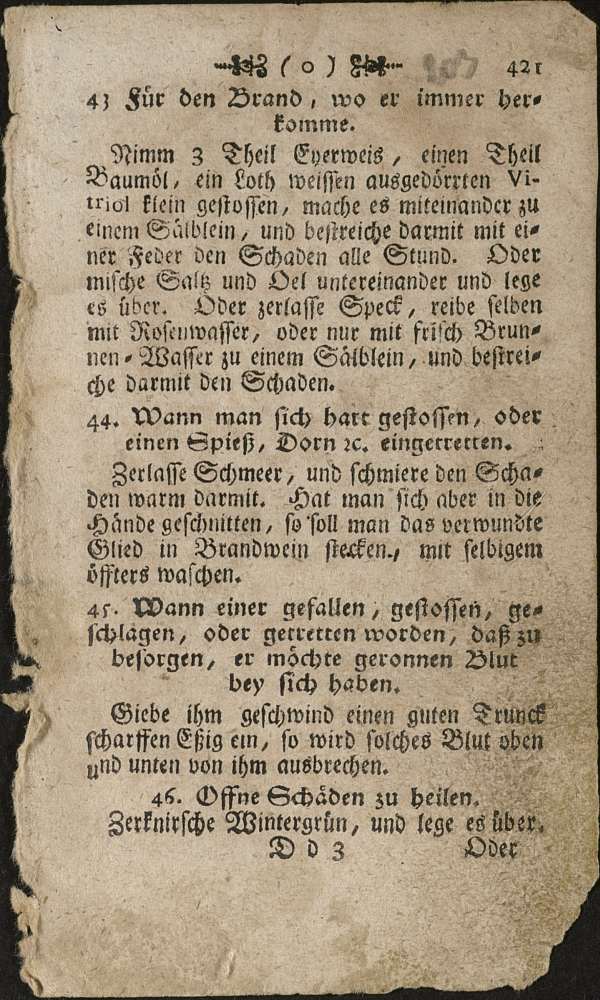 ( o ) 421
43 Für den Brand, wo er immer her-
komme.
Nimm 3 Theil Eyerweis, einen Theil
Baumöl, ein Loth weissen ausgedörrten Vi-
triol klein gestossen, mache es miteinander zu
einem Sälblein, und bestreiche darmit mit ei-
ner Feder den Schaden alle Stund. Oder
mische Saltz und Oel untereinander und lege
es über. Oder zerlasse Speck, reibe selben
mit Rosenwasser, oder nur mit frisch Brun-
nen-Wasser zu einem Sälblein, und bestrei-
che darmit den Schaden.
44. Wann man sich hart gestossen, oder
einen Spieß, Dorn ꝛc. eingetretten.
Zerlasse Schmeer, und schmiere den Scha-
den warm darmit. Hat man sich aber in die
Hände geschnitten, so soll man das verwundte
Glied in Brandwein stecken, mit selbigem
öffters waschen.
45. Wann einer gefallen, gestossen, ge-
schlagen, oder getretten worden, daß zu
besorgen, er möchte geronnen Blut
bey sich haben.
Giebe ihm geschwind einen guten Trunck
scharffen Eßig ein, so wird solches Blut oben
und unten von ihm ausbrechen.
46. Offne Schäden zu heilen.
Zerknirsche Wintergrün, und lege es über.
D d 3 Oder